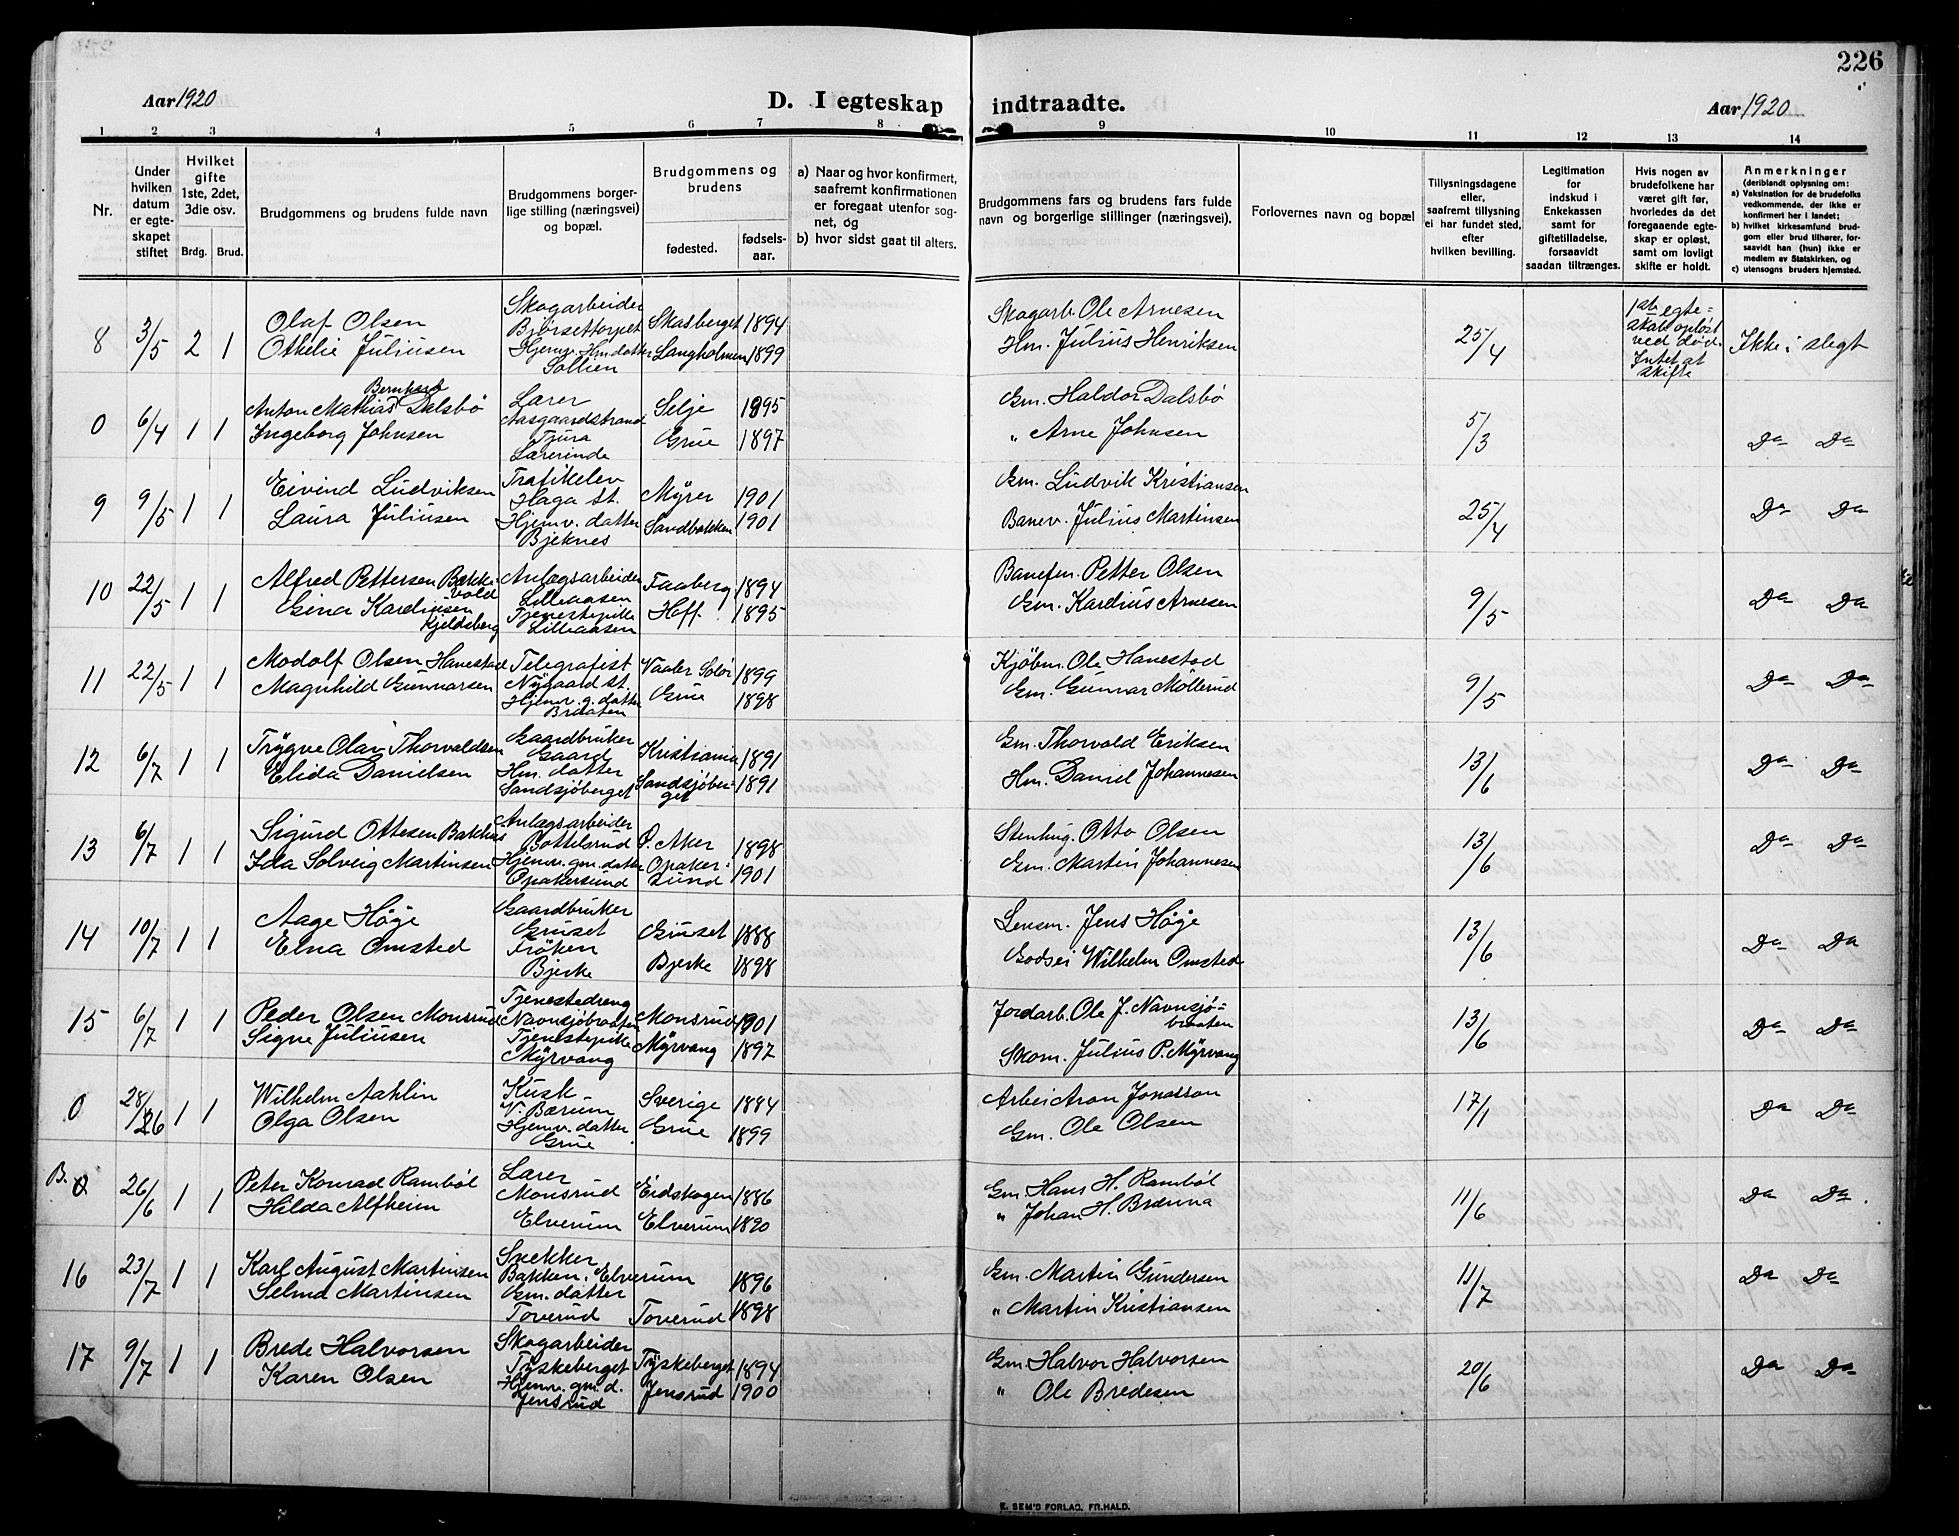 226
Aar 1920
D. I egteskap indtraadte.
Aar 1920
1 2 3 4 5 6 7 8 9 10 11 12 13 14
Nr.
Under hvilken datum er egteskapet stiftet
Hvilket gifte 1ste, 2det, 3die osv.
Brdg. Brud.
Brudgommens og brudens fulde navn
Brudgommens borgerlige stilling (næringsvei) og bopæl.
Brudgommens og brudens
fødested.
fødselsaar.
a) Naar og hvor konfirmert, saafremt konfirmationen er foregaat utenfor sognet, og
b) hvor sidst gaat til alters.
Brudgommens fars og brudens fars fulde navn og borgerlige stillinger (næringsvei).
Forlovernes navn og bopæl
Tillysningsdagene eller, saafremt tillysning ei har fundet sted, efter hvilken bevilling.
Legitimation for indskud i Enkekassen samt for giftetilladelse, forsaavidt saadan tiltrænges.
Hvis nogen av brudefolkene har været gift før, hvorledes da det foregaaende egteskap er opløst, samt om lovligt skifte er holdt.
Anmerkninger
(deriblandt oplysning om:
a) Vaksination for de brudefolks vedkommende, der ikke er konfirmert her i landet;
b) hvilket kirkesamfund brudgom eller brud tilhører, forsaavidt han (hun) ikke er medlem av Statskirken, og
c) utensogns bruders hjemsted.
8 3/5 2 1
Olaf Olsen
Othelie Juliusen
Skogarbeider
Bjørsettorpet
Hjemv. Hm. datter
Sollien
Skasberget 1894
Langholmen 1899
Skogarb. Ole Arnesen
Hm. Julius Henriksen
25/4
1ste egte-
skab opløst
ved død.
Intet at
skifte
Ikke i slegt
0 6/4 1 1
Anton Mathias Bernhard Dalsbø
Ingeborg Johnsen
Lærer
Aasgaardstrand
Tjura
Lærerinde
Selje 1895
Grue 1897
Gm. Haldor Dalsbø
" Arne Johnsen
5/3
Do Do
9 9/5 1 1
Eivind Ludviksen
Laura Juliusen
Trafikelev
Haga st.
Hjemv. datter
Bjeknes
Myrer 1901
Sandbakken 1901
Gm. Ludvik Kristiansen
Banev. Julius Martinsen
25/4
Do Do
10 22/5 1 1
Alfred Pettersen Bakke-
vold
Gina Kardiusen
Kjeldsberg
Anlægsarbeider
Lilleaasen
Tjenestepike
Lilleaasen
Faaberg 1894
Hoff 1895
Baneform. Petter Olsen
Gm. Kardius Arnesen
9/5
Do Do
11 22/5 1 1
Modolf Olsen Hanestad
Magnhild Gunnarsen
Telegrafist
Nygaard st.
Hjemv. g. datter
Braaten
Vaaler Solør 1899
Grue 1898
Kjøbm. Ole Hanestad
Gm. Gunnar Møllerud
9/5
Do Do
12 6/7 1 1
Trygve Olav Thorvaldsen
Elida Danielsen
Gaardbruker
Gaard
Hm. datter
Sandsjøberget
Kristiania 1891
Sandsjøber-
get 1891
Gm. Thorvald Eriksen
Hm. Daniel Johannesen
13/6
Do Do
13 6/7 1 1
Sigurd Ottesen Bakhus
Ida Solveig Martinsen
Anlægsarbeider
Bottelsrud
Hjemv. gm. datter
Opakersund
Ø. Aker 1898
Opaker-
sund 1901
Stenhug. Otto Olsen
Gm. Martin Johannesen
13/6
Do Do
14 10/7 1 1
Aage Høje
Elna Omsted
Gaardbruker
Gruset
Frøken
Bjerke
Gruset 1888
Bjerke 1898
Lensm. Jens Høje
Godsei Wilhelm Omsted
13/6
Do Do
15 6/7 1 1
Peder Olsen Monsrud
Signe Juliusen
Tjenestedreng
Navnsjøbraaten
Tjenestepike
Myrvang
Monsrud 1901
Myrvang 1897
Jordarb. Ole J. Navnsjø-
braaten
Skom. Julius P. Myrvang
13/6
Do Do
0 28/126 1 1
Wilhelm Aahlin
Olga Olsen
Kusk
V. Bærum
Hjemv. datter
Grue
Sverige 1884
Grue 1899
Arbei Aron Jonasson
Gm. Ole Olsen
17/1
Do Do
B. 0 26/6 1 1
Peter Konrad Rambøl
Hilda Alfheim
Lærer
Monsrud
Elverum
Eidskogen 1886
Elverum 1890
Gm Hans H. Rambøl
" Johan H. Brænna
11/6
Do Do
16 23/7 1 1
Karl August Martinsen
Selma Martinsen
Snekker
Bakken, Elverum 1896
Gm. datter
Toverud
Toverud 1898
Gm. Martin Gundersen
" Martin Kristiansen
11/7
Do Do
17 9/7 1 1
Brede Halvorsen
Karen Olsen
Skogarbeider
Tyskeberget
Hjemv. gm. d.
Jensrud
Tyskeberget 1894
Jensrud 1900
Gm Halvor Halvorsen
" Ole Bredesen
20/6
Do Do
E. SEM'S FORLAG, FR.HALD.